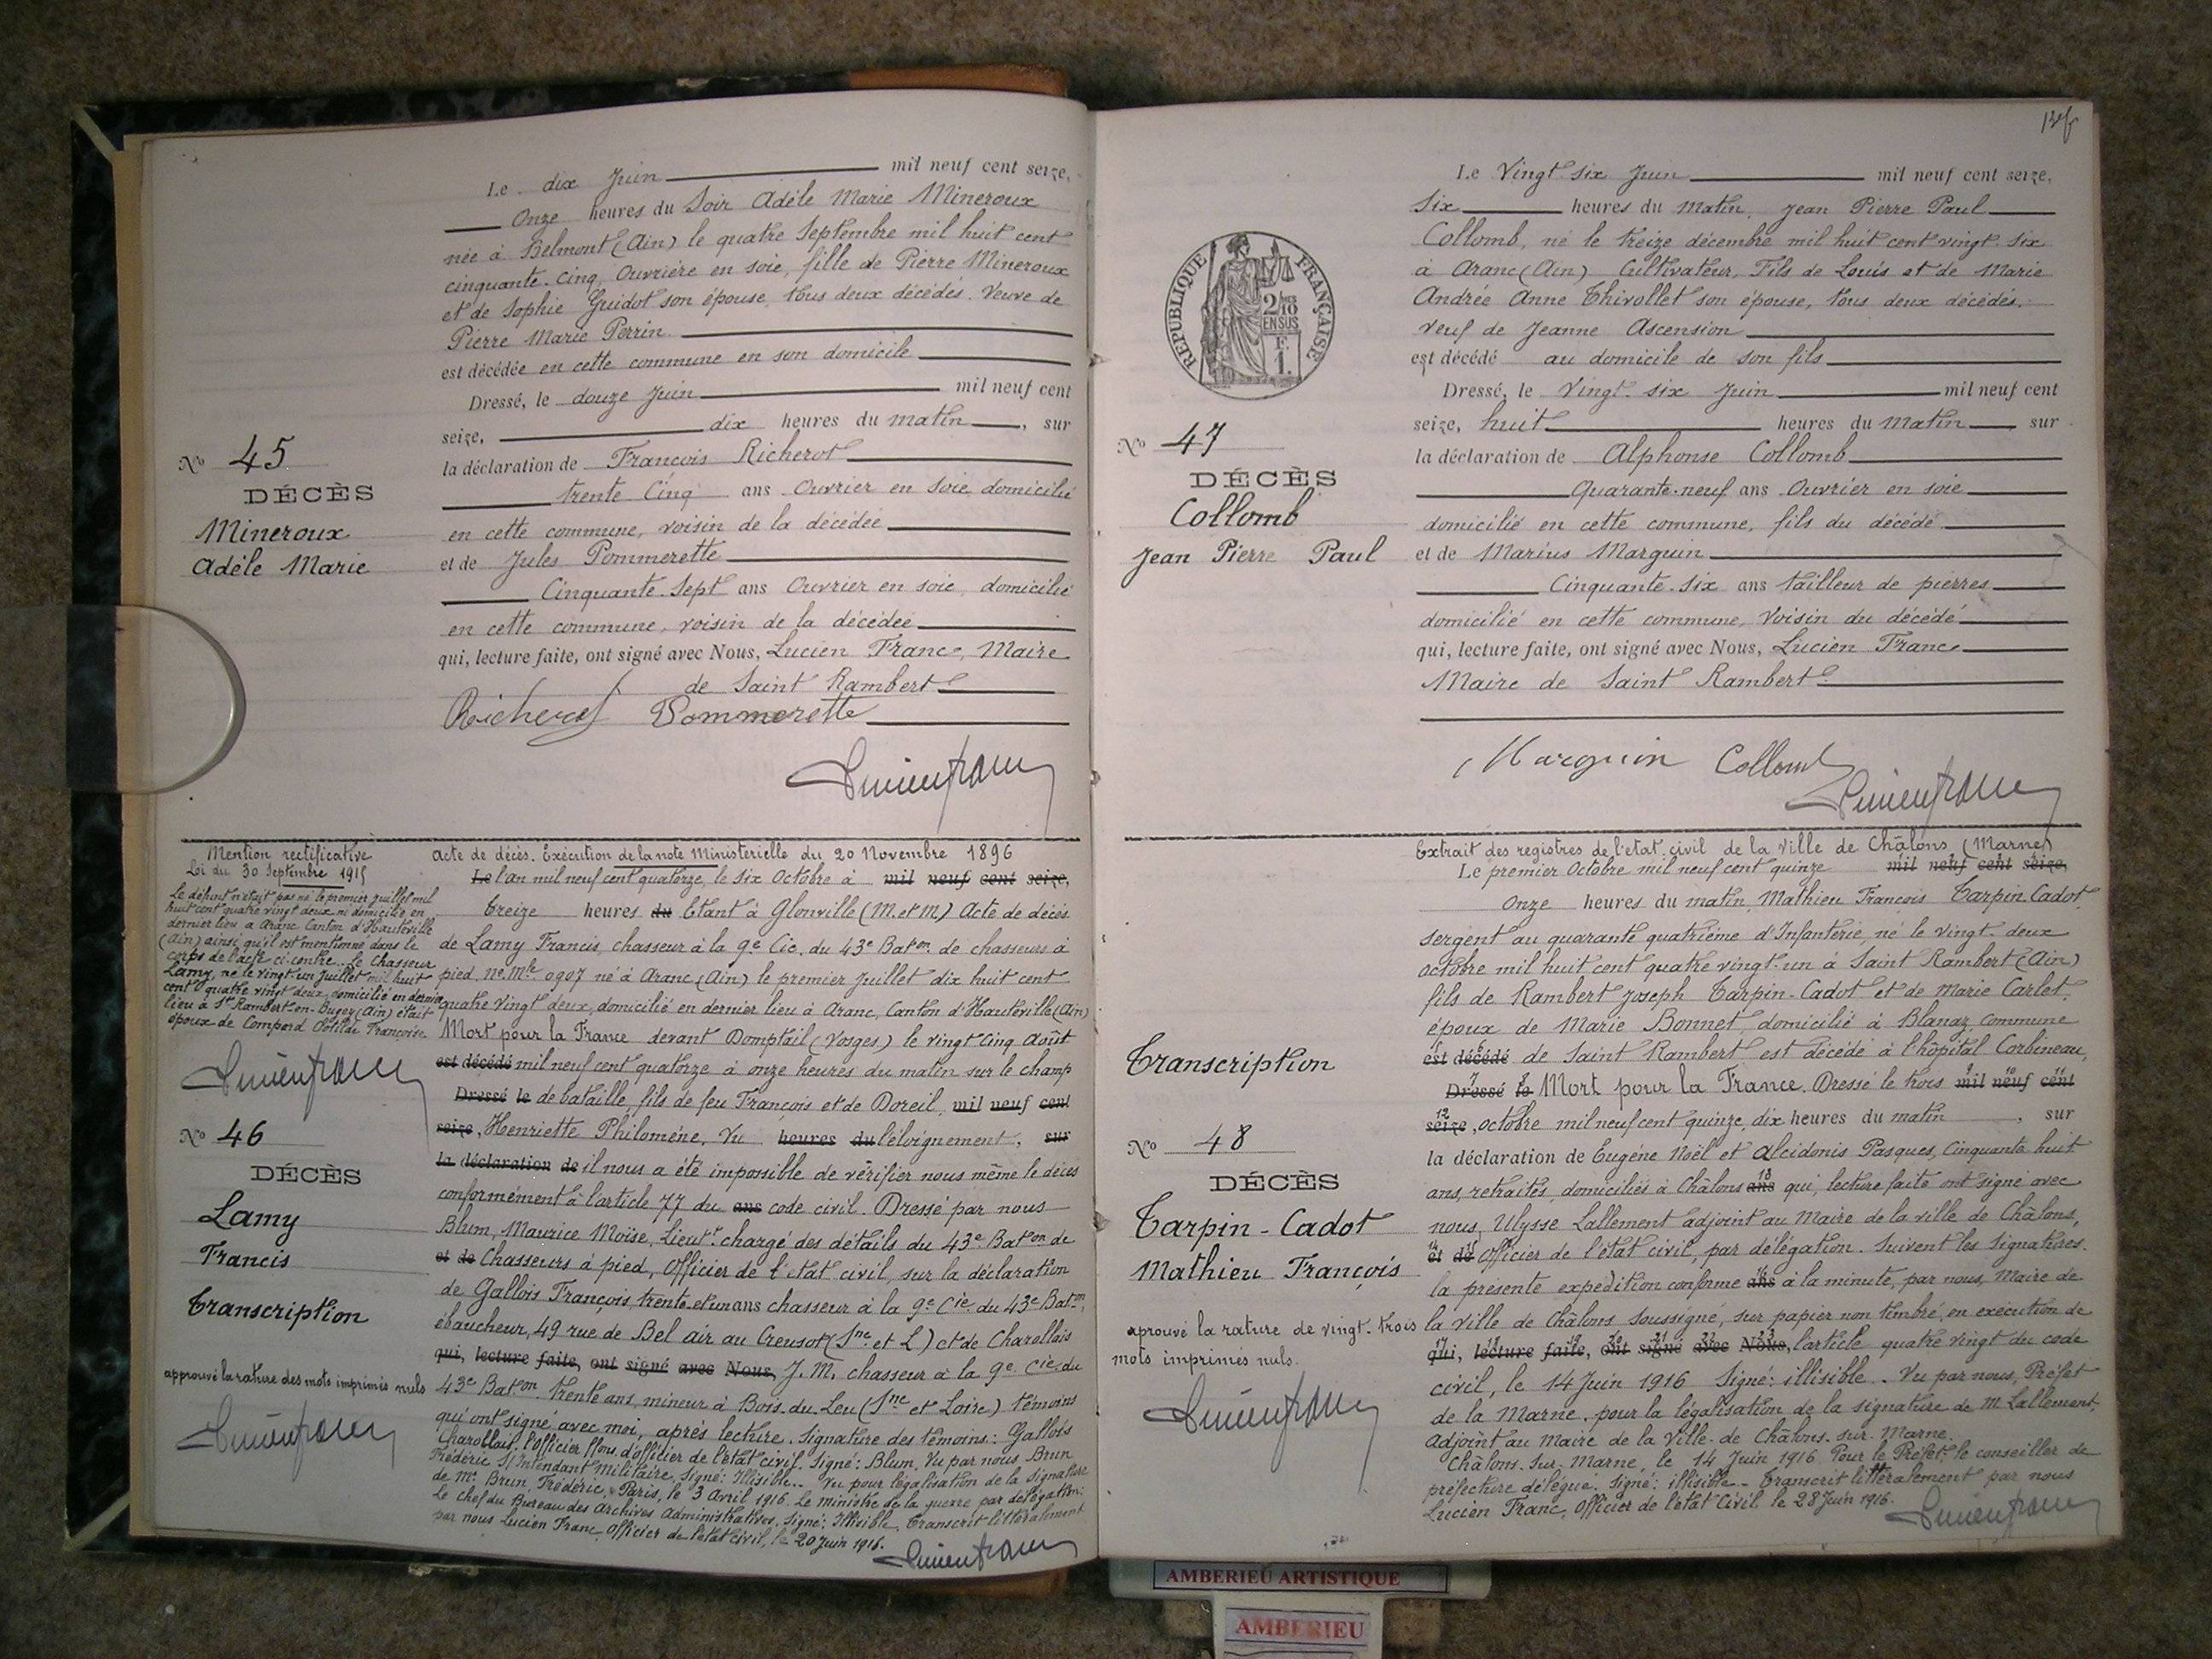 Le dix Juin mil neuf cent seize,
Onze heures du Soir Adèle Marie Mineroux
née à Belmont (Ain) le quatre Septembre mil huit cent
cinquante-cinq, Ouvrière en soie, fille de Pierre Mineroux
et de Sophie Guidot son épouse, tous deux décédés. Veuve de
Pierre Marie Perrin.
est décédée en cette commune en son domicile
Dressé, le douze Juin mil neuf cent
seize, dix heures du matin, sur
la déclaration de François Richerot
trente Cinq ans Ouvrier en Soie, domicilié
en cette commune, voisin de la décédée
et de Jules Pommerette
Cinquante-Sept ans Ouvrier en soie, domicilié
en cette commune, voisin de la décédée
qui, lecture faite, ont signé avec Nous, Lucien Franc, Maire
de Saint Rambert
Richerot Pommerette
Lucien franc
No 45
DÉCÈS
Mineroux
Adèle Marie
Mention rectificative
Loi du 30 Septembre 1915
Le défunt n'était pas né le premier Juillet mil
huit cent quatre vingt deux ni domicilié en
dernier lieu à Aranc Canton d'Hauteville
(Ain) ainsi qu'il est mentionné dans le
corps de l'acte ci-contre. Le Chasseur
Lamy, né le vingt un Juillet mil huit
cent quatre vingt deux, domicilié en dernier
lieu à St Rambert-en-Bugey (Ain) était
époux de Comperd Clotilde Françoise.
Lucien franc
No 46
DÉCÈS
Lamy
Francis
Transcription
approuvé la rature des mots imprimés nuls
Lucien franc
Acte de décès. Exécution de la note Ministérielle du 20 Novembre 1896
Le l'an mil neuf cent quatorze, le six Octobre à mil neuf cent seize,
treize heures du Etant à Glonville (M. et M.) Acte de décès
de Lamy Francis, chasseur à la 9e Cie. du 43e Baton de chasseurs à
pied No. Mle 0907 né à Aranc (Ain) le premier Juillet dix huit cent
quatre vingt deux, domicilié en dernier lieu à Aranc, Canton d'Hauteville (Ain)
Mort pour la France devant Domptail (Vosges) le vingt cinq Août
est décédé mil neuf cent quatorze à onze heures du matin sur le champ
Dressé le de bataille, fils de feu François et de Doreil, mil neuf cent
seize, Henriette Philomène. Vu heures du l'éloignement, sur
la déclaration de il nous a été impossible de vérifier nous même le décès
conformément à l'article 77 du ans code civil. Dressé par nous
Blum, Maurice Moïse, Lieutt. chargé des détails du 43e Baton de
et de Chasseurs à pied, Officier de l'état civil, sur la déclaration
de Gallois François, trente-et-un ans chasseur à la 9e Cie. du 43e Baton,
ébaucheur, 49 rue de Bel air au Creusot (Sne et L) et de Charollais
qui, lecture faite, ont signé avec Nous, J. M. chasseur à la 9e Cie du
43e Baton. trente ans, mineur à Bois-du-Leu (Sne et Loire) témoins
qui ont signé avec moi, après lecture. Signature des témoins: Gallois
Charollais, l'officier ffons d'officier de l'état civil. Signé: Blum. Vu par nous Brun
Frédéric S/Intendant Militaire, Signé: Illisible. Vu pour légalisation de la signature
de Mr. Brun, Frédéric, Paris, le 3 Avril 1916. Le ministre de la guerre par délégation:
Le chef du Bureau des Archives Administratives. Signé: Illisible. Transcrit littéralement
par nous Lucien Franc, Officier de l'état Civil, le 20 Juin 1916.
Lucien franc
Le Vingt-six Juin mil neuf cent seize,
Six heures du matin, Jean Pierre Paul
Collomb, né le treize décembre mil huit cent vingt-six
à Aranc (Ain) Cultivateur, Fils de Louis et de Marie
Andrée Anne Thivollet son épouse, tous deux décédés.
veuf de Jeanne Ascension
est décédé au domicile de son fils
Dressé, le Vingt-six Juin mil neuf cent
seize, huit heures du Matin sur
la déclaration de Alphonse Collomb
Quarante-neuf ans Ouvrier en soie
domicilié en cette commune, fils du décédé
et de Marius Marguin
Cinquante-six ans tailleur de pierres
domicilié en cette commune, Voisin du décédé
qui, lecture faite, ont signé avec Nous, Lucien Franc
Maire de Saint Rambert
Marguin Collomb
Lucien franc
RÉPUBLIQUE FRANÇAISE
2/10
EN SUS
F.
1.
No 47
DÉCÈS
Collomb
Jean Pierre Paul
Extrait des registres de l'état civil de la ville de Châlons (Marne)
Le premier Octobre mil neuf cent quinze mil neuf cent seize,
Onze heures du matin, Mathieu François Tarpin-Cadot,
sergent au quarante quatrième d'Infanterie, né le vingt-deux
octobre mil huit cent quatre vingt-un à Saint Rambert (Ain)
fils de Rambert Joseph Tarpin-Cadot et de Marie Carlet,
époux de Marie Bonnet, domicilié à Blanaz, commune
est décédé de Saint Rambert est décédé à l'hôpital Corbineau,
Dressé le Mort pour la France. Dressé le trois mil neuf cent
seize, octobre mil neuf cent quinze, dix heures du matin, sur
la déclaration de Eugène Noël et Alcidonis Pasques, Cinquante huit
ans, retraités, domiciliés à Châlons ans qui, lecture faite ont signé avec
nous, Ulysse Lallement adjoint au Maire de la ville de Châlons,
et de Officier de l'état civil, par délégation. Suivent les Signatures.
la présente expédition conforme ans à la minute, par nous, Maire de
la ville de Châlons soussigné, sur papier non timbré, en exécution de
qui, lecture faite, ont signé avec Nous, l'article quatre vingt du code
civil, le 14 Juin 1916 Signé: illisible. Vu par nous, Préfet
de la Marne, pour la légalisation de la signature de M. Lallement,
Adjoint au Maire de la Ville de Châlons-sur-Marne.
Châlons-sur-Marne, le 14 Juin 1916 Pour le Préfet, le conseiller de
préfecture délégué. Signé: illisible. Transcrit littéralement par nous
Lucien Franc, Officier de l'état Civil le 28 Juin 1916.
Lucien franc
Transcription
No 48
DÉCÈS
Tarpin-Cadot
Mathieu François
aprouvé la rature de vingt-trois
mots imprimés nuls.
Lucien franc
AMBERIEU ARTISTIQUE
AMBERIEU